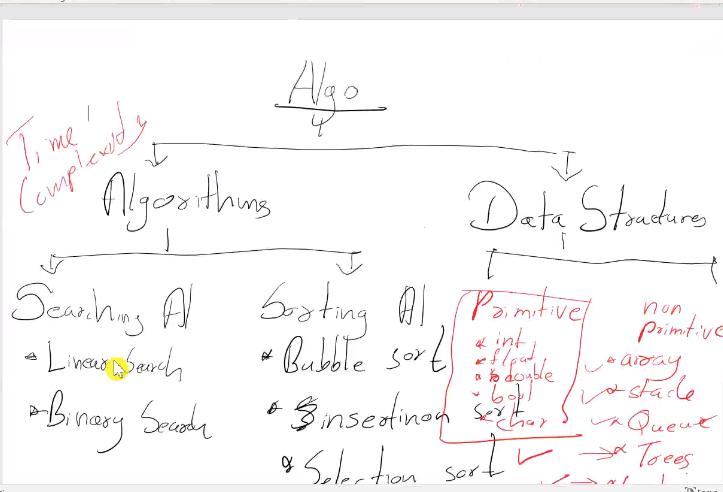 Algo
Time
Complexity
Algorithms
Data Structures
Searching Al
* Linear Search
* Binary Search
Sorting Al
* Bubble sort
* insertinon sort
* Selection sort
Primitive
* int
* float
* double
* bool
* char
non
primitive
* array
* stack
* Queue
* Trees